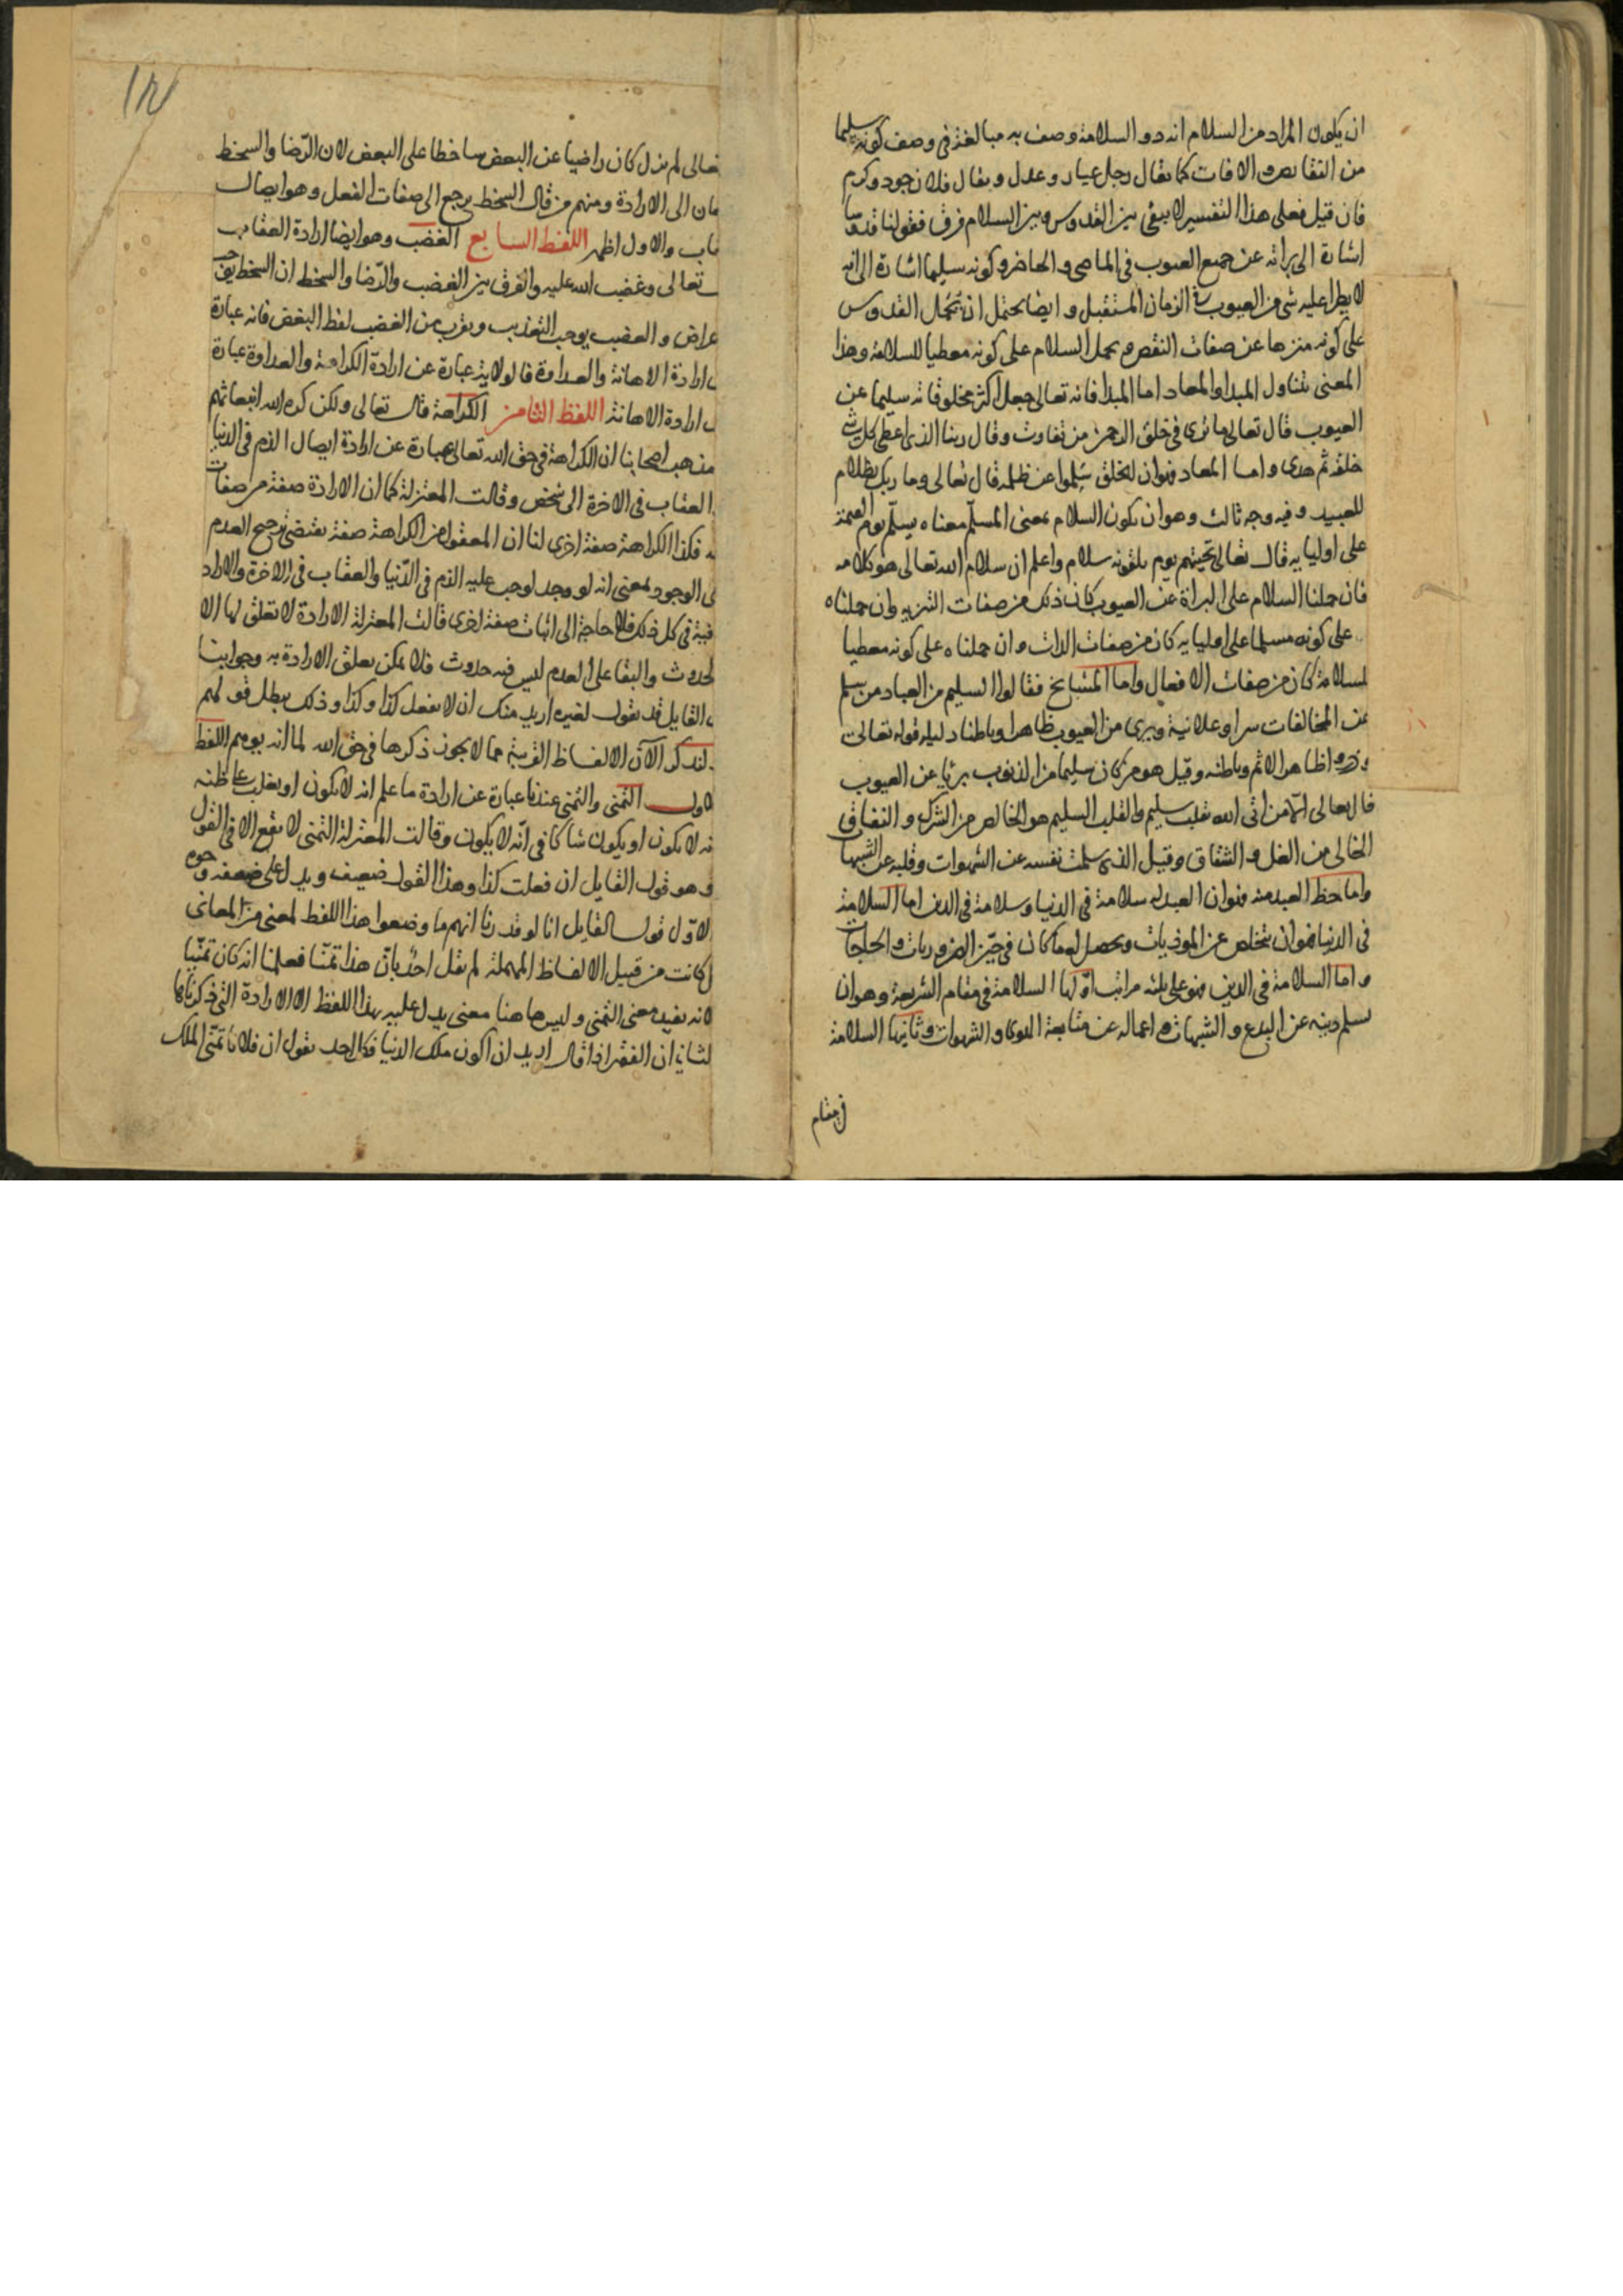 ان يكون المراد من السلام انه ذو السلامة وصف به مبالغة فى وصف كونه سليما
من النقايص والافات كما يقال رجل عياد وعدل ويقال فلان جود وكرم
فان قيل فعلى هذا التفسير لا يبقى بين القدوس وبين السلام فرق فقولنا قدوسا
اشارة الى براته عن جميع العيوب فى الماضى والحاضر وكونه سليما اشارة الى انه
لا يطرا عليه شى من العيوب فى الزمان المستقبل وايضا يحتمل ان يحمل القدوس
على كونه منزها عن صفات النقص ويحمل السلام على كونه معطيا للسلامة وهذا
المعنى يتناول المبدا والمعاد اما المبدا فانه تعالى جعل اكثر مخلوقاته سليما عن
العيوب قال تعالى ما ترى فى خلق الرحمن من تفاوت وقال ربنا الذى اعطى كل شى
خلقه ثم هدى واما المعاد فهو ان الخلق سلموا عن ظلمه قال تعالى وما ربك بظلام
للعبيد وفيه وجه ثالث وهو ان يكون السلام بمعنى المسلم معناه يسلم يوم القيمة
على اوليايه قال تعالى تحيتهم يوم يلقونه سلام واعلم ان سلام الله تعالى هو كلامه
فان حملنا السلام على البراة عن العيوب كان ذلك من صفات التنزيه وان حملناه
على كونه مسلما على اوليايه كان من صفات الذات وان حملناه على كونه معطيا
للسلامة كان من صفات الافعال واما المشايخ فقالوا السليم من العباد من سلم
عن المخالفات سرا وعلانية وبرى من العيوب ظاهرا وباطنا دليله قوله تعالى
وذروا ظاهر الاثم وباطنه وقيل هو من كان سليما من الذنوب بريا عن العيوب
قال تعالى الا من اتى الله بقلب سليم والقلب السليم هو الخالص من الشرك والنفاق
الخالى من الغل والشقاق وقيل الذى سلمت نفسه عن الشهوات وقلبه عن الشبهات
واما حظ العبد منه فهو ان العبد له سلامة فى الدنيا وسلامة فى الدين اما السلامة
فى الدنيا فهو ان يتخلص عن الموذيات ويحصل له ما كان فى حيز الضروريات والحاجات
واما السلامة فى الدين فهو على ثلثه مراتب اولها السلامة فى مقام الشريعة وهو ان
يسلم دينه عن البدع والشبهات واعماله عن متابعة الهوى والشهوات وثانيها السلامة
فى مقام
تعالى لم يزل كان راضيا عن البعض ساخطا على البعض لان الرضا والسخط
الى الارادة ومنهم من قال السخط يرجع الى صفات الفعل وهو ايصال
والاول اظهر اللفظ السابع الغضب وهو ايضا ارادة العقاب
تعالى وغضب الله عليه والفرق بين الغضب والرضا والسخط ان السخط يوجب
والغضب يوجب التعذيب ويقرب من الغضب لفظ البغض فانه عبارة
ارادة الاهانة والعداوة فالولاية عبارة عن ارادة الكرامة والعداوة عبارة
ارادة الاهانة اللفظ الثامن الكراهة قال تعالى ولكن كره الله انبعاثهم
مذهب اصحابنا ان الكراهة فى حق الله تعالى عبارة عن ارادة ايصال الذم فى الدنيا
العقاب فى الاخرة الى شخص وقالت المعتزلة كما ان الارادة صفة من صفات
فكذا الكراهة صفة اخرى لنا ان المعقول من الكراهة صفة يقتضى ترجيح العدم
الوجود بمعنى انه لو وجد لوجب عليه الذم فى الدنيا والعقاب فى الاخرة والارادة
فى كل ذلك فلا حاجة الى اثبات صفة اخرى قالت المعتزلة الارادة لا تعلق لها الا
والبقا على العدم ليس فيه حدوث فلا يمكن تعلق الارادة به وجوابنا
القايل قد يقول لغيره اريد منك ان لا تفعل كذا وكذا وذلك يبطل قولهم
ولنذكر الآن الالفاظ القريبة مما لا يجوز ذكرها فى حق الله لما انه يوهم اللفظ
الاول التمنى والتمنى عندنا عبارة عن ارادة ما علم انه لا يكون او يغلب على ظنه
انه لا يكون او يكون شاكا فى انه لا يكون وقالت المعتزلة التمنى لا يقع الا فى القول
وهو قول القايل ان فعلت كذا وهذا القول ضعيف ويدل على ضعفه وجوه
الاول قول القايل انا لو قدرنا انهم ما وضعوا هذا اللفظ لمعنى من المعانى
كانت من قبيل الالفاظ المهملة لم يقل احد بان هذا تمنا فعلمنا انه كان تمنيا
لانه يفيد معنى التمنى وليس هاهنا معنى يدل عليه بهذا اللفظ الا الارادة التى ذكرناها
الثانى ان الفقير اذا قال اريد ان اكون ملك الدنيا فكل احد يقول ان فلانا تمنى الملك